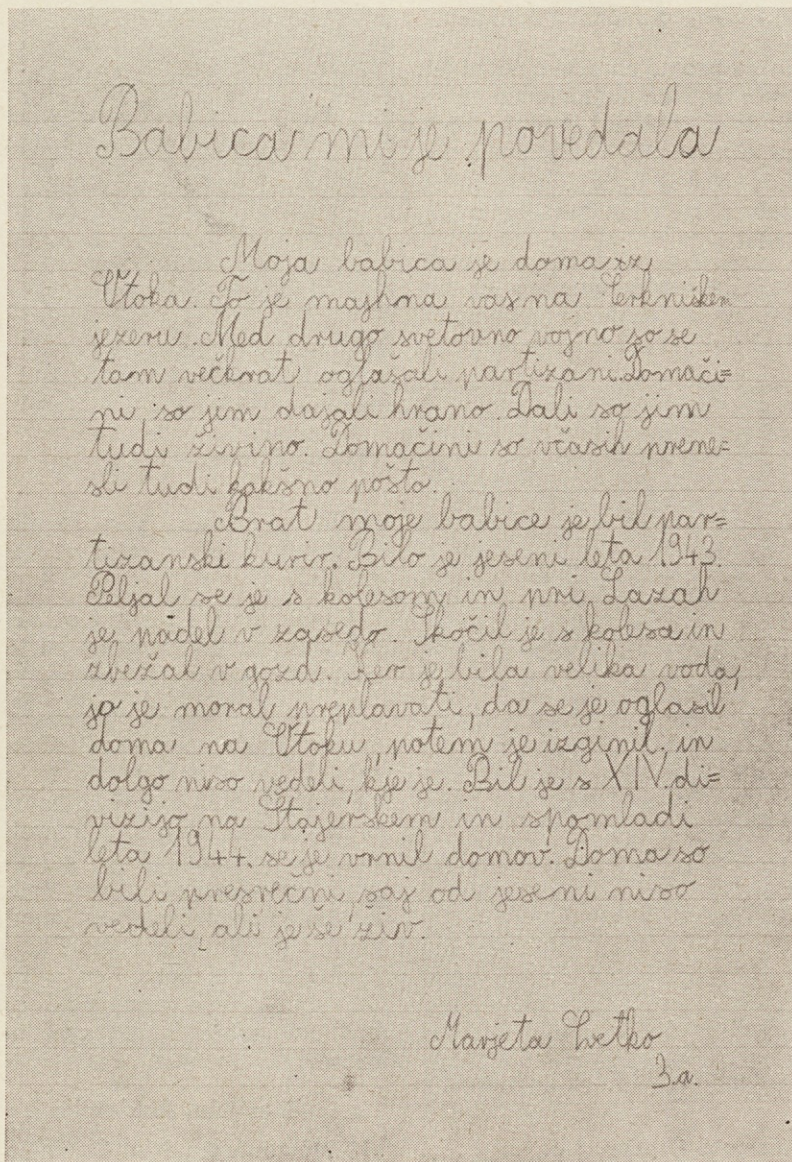 Babica mi je povedala
Moja babica je doma iz
Otoka. To je majhna vas na Cerkniškem
jezeru. Med drugo svetovno vojno so se
tam večkrat oglašali partizani. Domači=
ni so jim dajali hrano. Dali so jim
tudi živino. Domačini so včasih prene=
sli tudi kakšno pošto.
Brat moje babice je bil par=
tizanski kurir. Bilo je jeseni leta 1943.
Peljal se je s kolesom in pri Lazah
je padel v zasedo. Skočil je s kolesa in
zbežal v gozd. Ker je bila velika voda,
jo je moral preplavati, da se je oglasil
doma na Otoku, potem je izginil in
dolgo niso vedeli, kje je. Bil je s XIV. di=
vizijo na Štajerskem in spomladi
leta 1944. se je vrnil domov. Doma so
bili presrečni, saj od jeseni niso
vedeli, ali je še živ.
Marjeta
3.a.